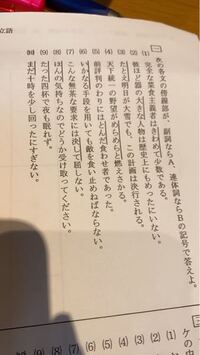 立語
一 次の各文の傍線部が、副詞ならA、連体詞ならBの記号で答えよ。
(1) 完全な菜食主義者はきわめて少数である。
(2) 彼ほど器の大きな人物は歴史上にもめったにいない。
(3) たとえ明日が大雪でも、この計画は決行される。
(4) 天下統一の野望がめらめらと燃えさかる。
(5) 前評判のわりにはとんだ食わせ者であった。
(6) いかなる手段を用いても敵を食い止めねばならない。
(7) こんな無茶な要求には決して屈しない。
(8) ほんの気持ちなのでどうか受け取ってください。
(9) たった四杯で夜も眠れず。
(10) まだ十時を少し回ったにすぎない。
二
ケの中
(1)
(2)
(3)
(4)
(5)
(6)
(7)
(8)